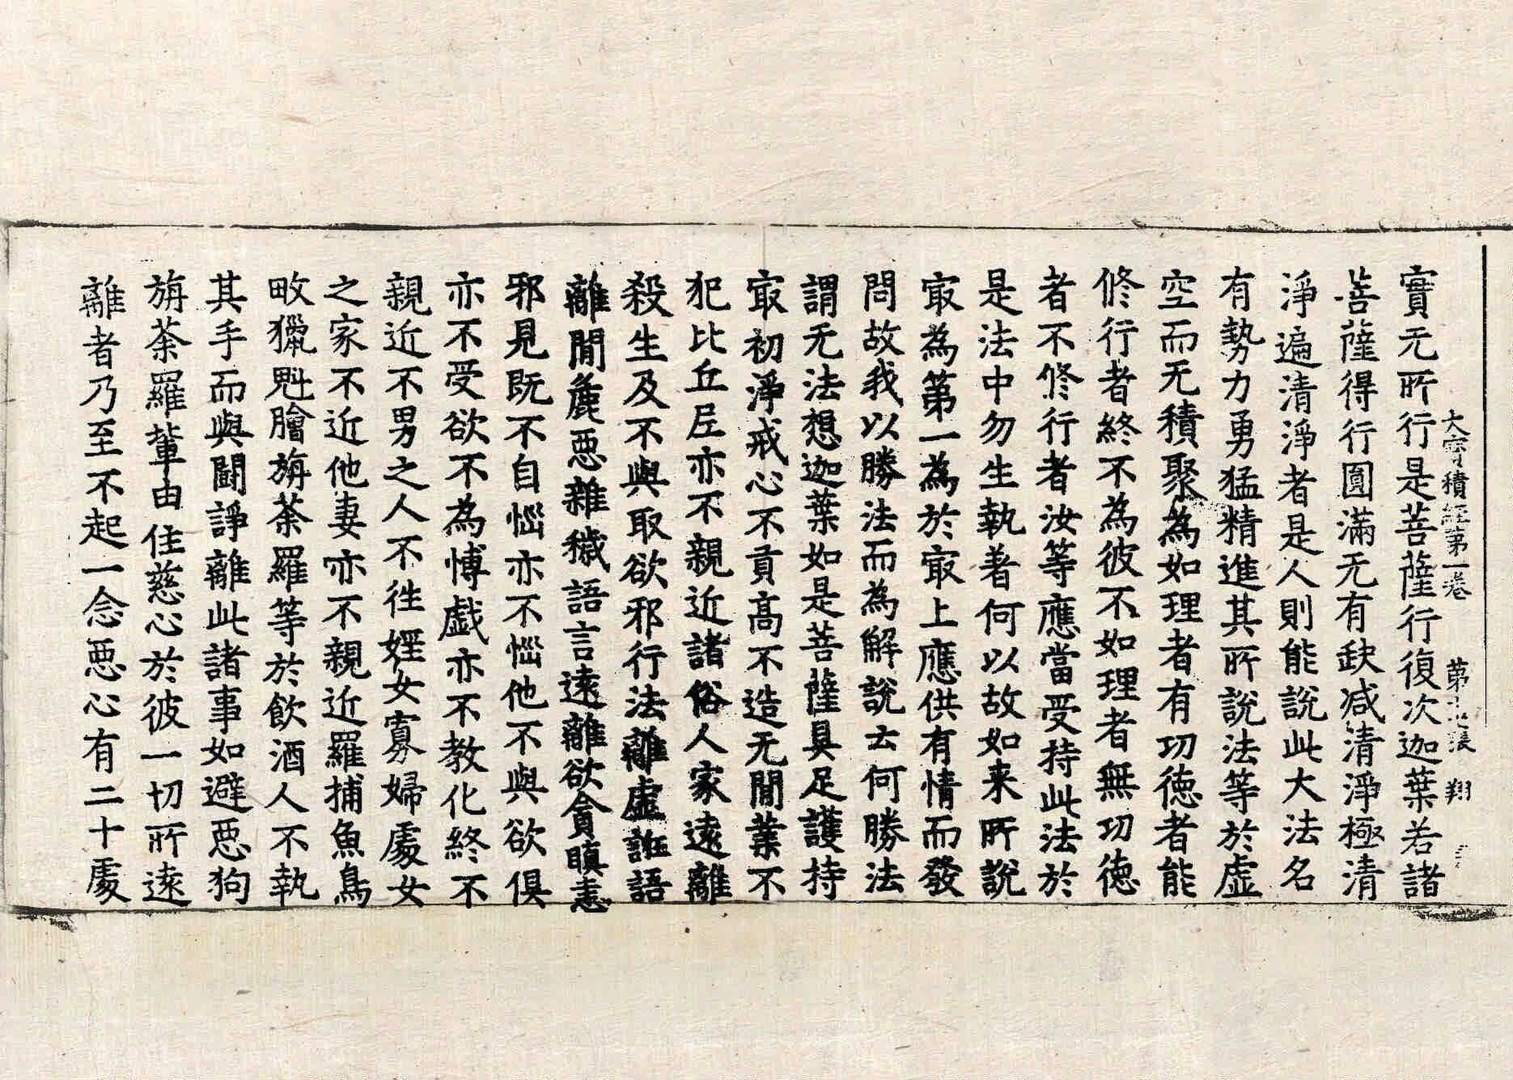 大寶積經第一卷 第十七張 翔
實无所行是菩薩行復次迦葉若諸
菩薩得行圓滿无有缺減清淨極清
淨遍清淨者是人則能說此大法名
有勢力勇猛精進其所說法等於虛
空而无積聚為如理者有功德者能
修行者終不為彼不如理者無功德
者不修行者汝等應當受持此法於
是法中勿生執著何以故如来所說
㝡為第一為於㝡上應供有情而發
問故我以勝法而為解說云何勝法
謂无法想迦葉如是菩薩具足護持
㝡初淨戒心不貢高不造无閒業不
犯比丘尼亦不親近諸俗人家遠離
殺生及不與取欲邪行法離虛誑語
離閒麁惡雜穢語言遠離欲貪瞋恚
邪見既不自惱亦不惱他不與欲俱
亦不受欲不為博戲亦不教化終不
親近不男之人不徃婬女寡婦處女
之家不近他妻亦不親近羅捕魚鳥
畋獵魁膾旃荼羅等於飲酒人不執
其手而與鬪諍離此諸事如避惡狗
旃荼羅輩由住慈心於彼一切所遠
離者乃至不起一念惡心有二十處